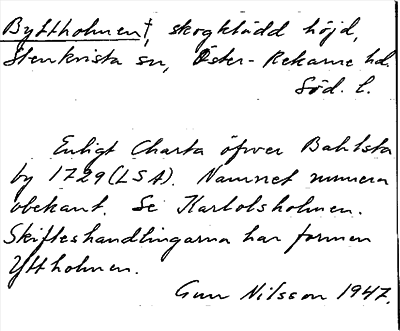 Byttholmen†, skogklädd höjd,
Stenkvista sn, Öster-Rekarne hd.
Söd. l.
Enligt Charta öfver Bahlsta
by 1729 (LSA). Namnet numera
obekant. Se Karlolsholmen.
Skifteshandlingarna har formen
Yttholmen.
Gun Nilsson 1947.